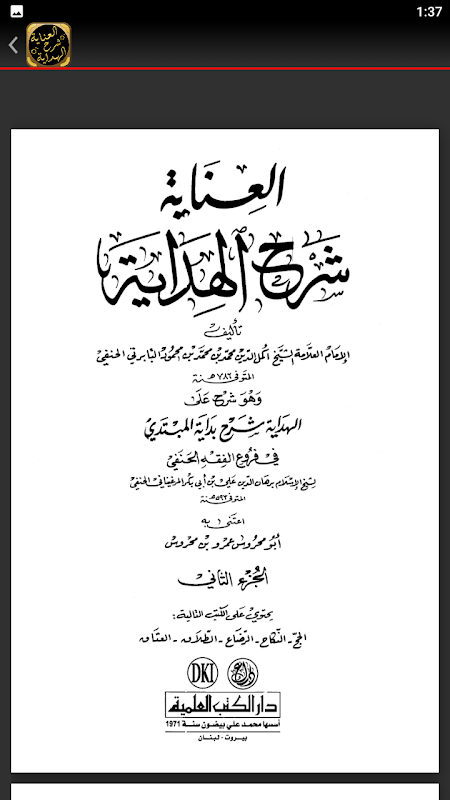 1:37
العناية
شرح
الهداية
العناية
شرح الهداية
تأليف
الإمام العلامة الشيخ أكمل الدين محمد بن محمد بن محمود البابرتي الحنفي
المتوفى ٧٨٦ هـ سنة
وهو شرح على
الهداية شرح بداية المبتدي
في فروع الفقه الحنفي
لشيخ الإسلام برهان الدين علي بن أبي بكر المرغيناني الحنفي
المتوفى ٥٩٣ هـ سنة
اعتنى به
أبو محروس عمرو بن محروس
الجزء الثاني
يحتوي على الكتب التالية:
الحج - النكاح - الرضاع - الطلاق - العتاق
DKI
دار الكتب العلمية
أسسها محمد علي بيضون سنة 1971
بيروت - لبنان